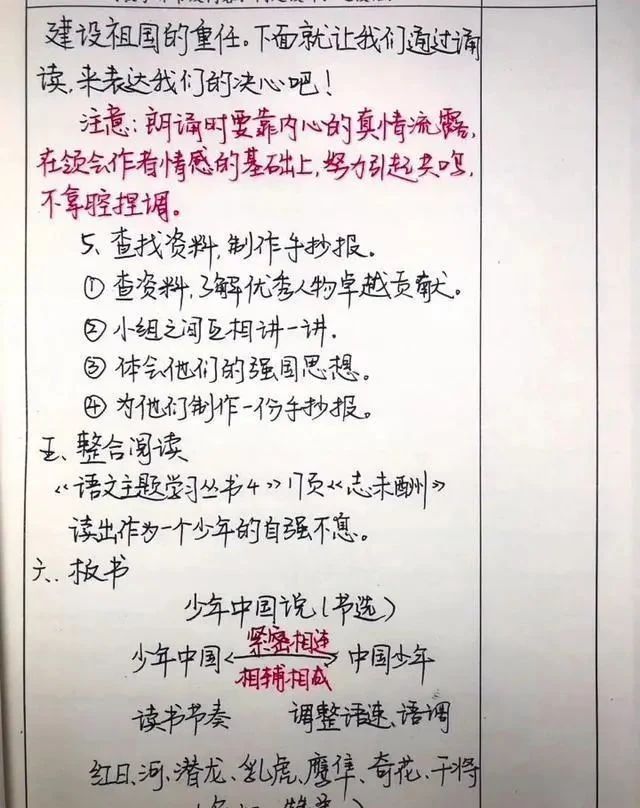 建设祖国的重任。下面就让我们通过诵
读,来表达我们的决心吧!
注意:朗诵时要靠内心的真情流露,
在领会作者情感的基础上,努力引起共鸣,
不拿腔捏调。
5、查找资料,制作手抄报。
① 查资料,了解优秀人物卓越贡献。
② 小组之间互相讲一讲.
③ 体会他们的强国思想。
④ 为他们制作一份手抄报。
五、整合阅读
《语文主题学习丛书4》17页《志未酬》
读出作为一个少年的自强不息。
六、板书
少年中国说(节选)
紧密相连
少年中国 中国少年
相辅相成
读书节奏 调整语速、语调
红日、河、潜龙、乳虎、鹰隼、奇花、干将